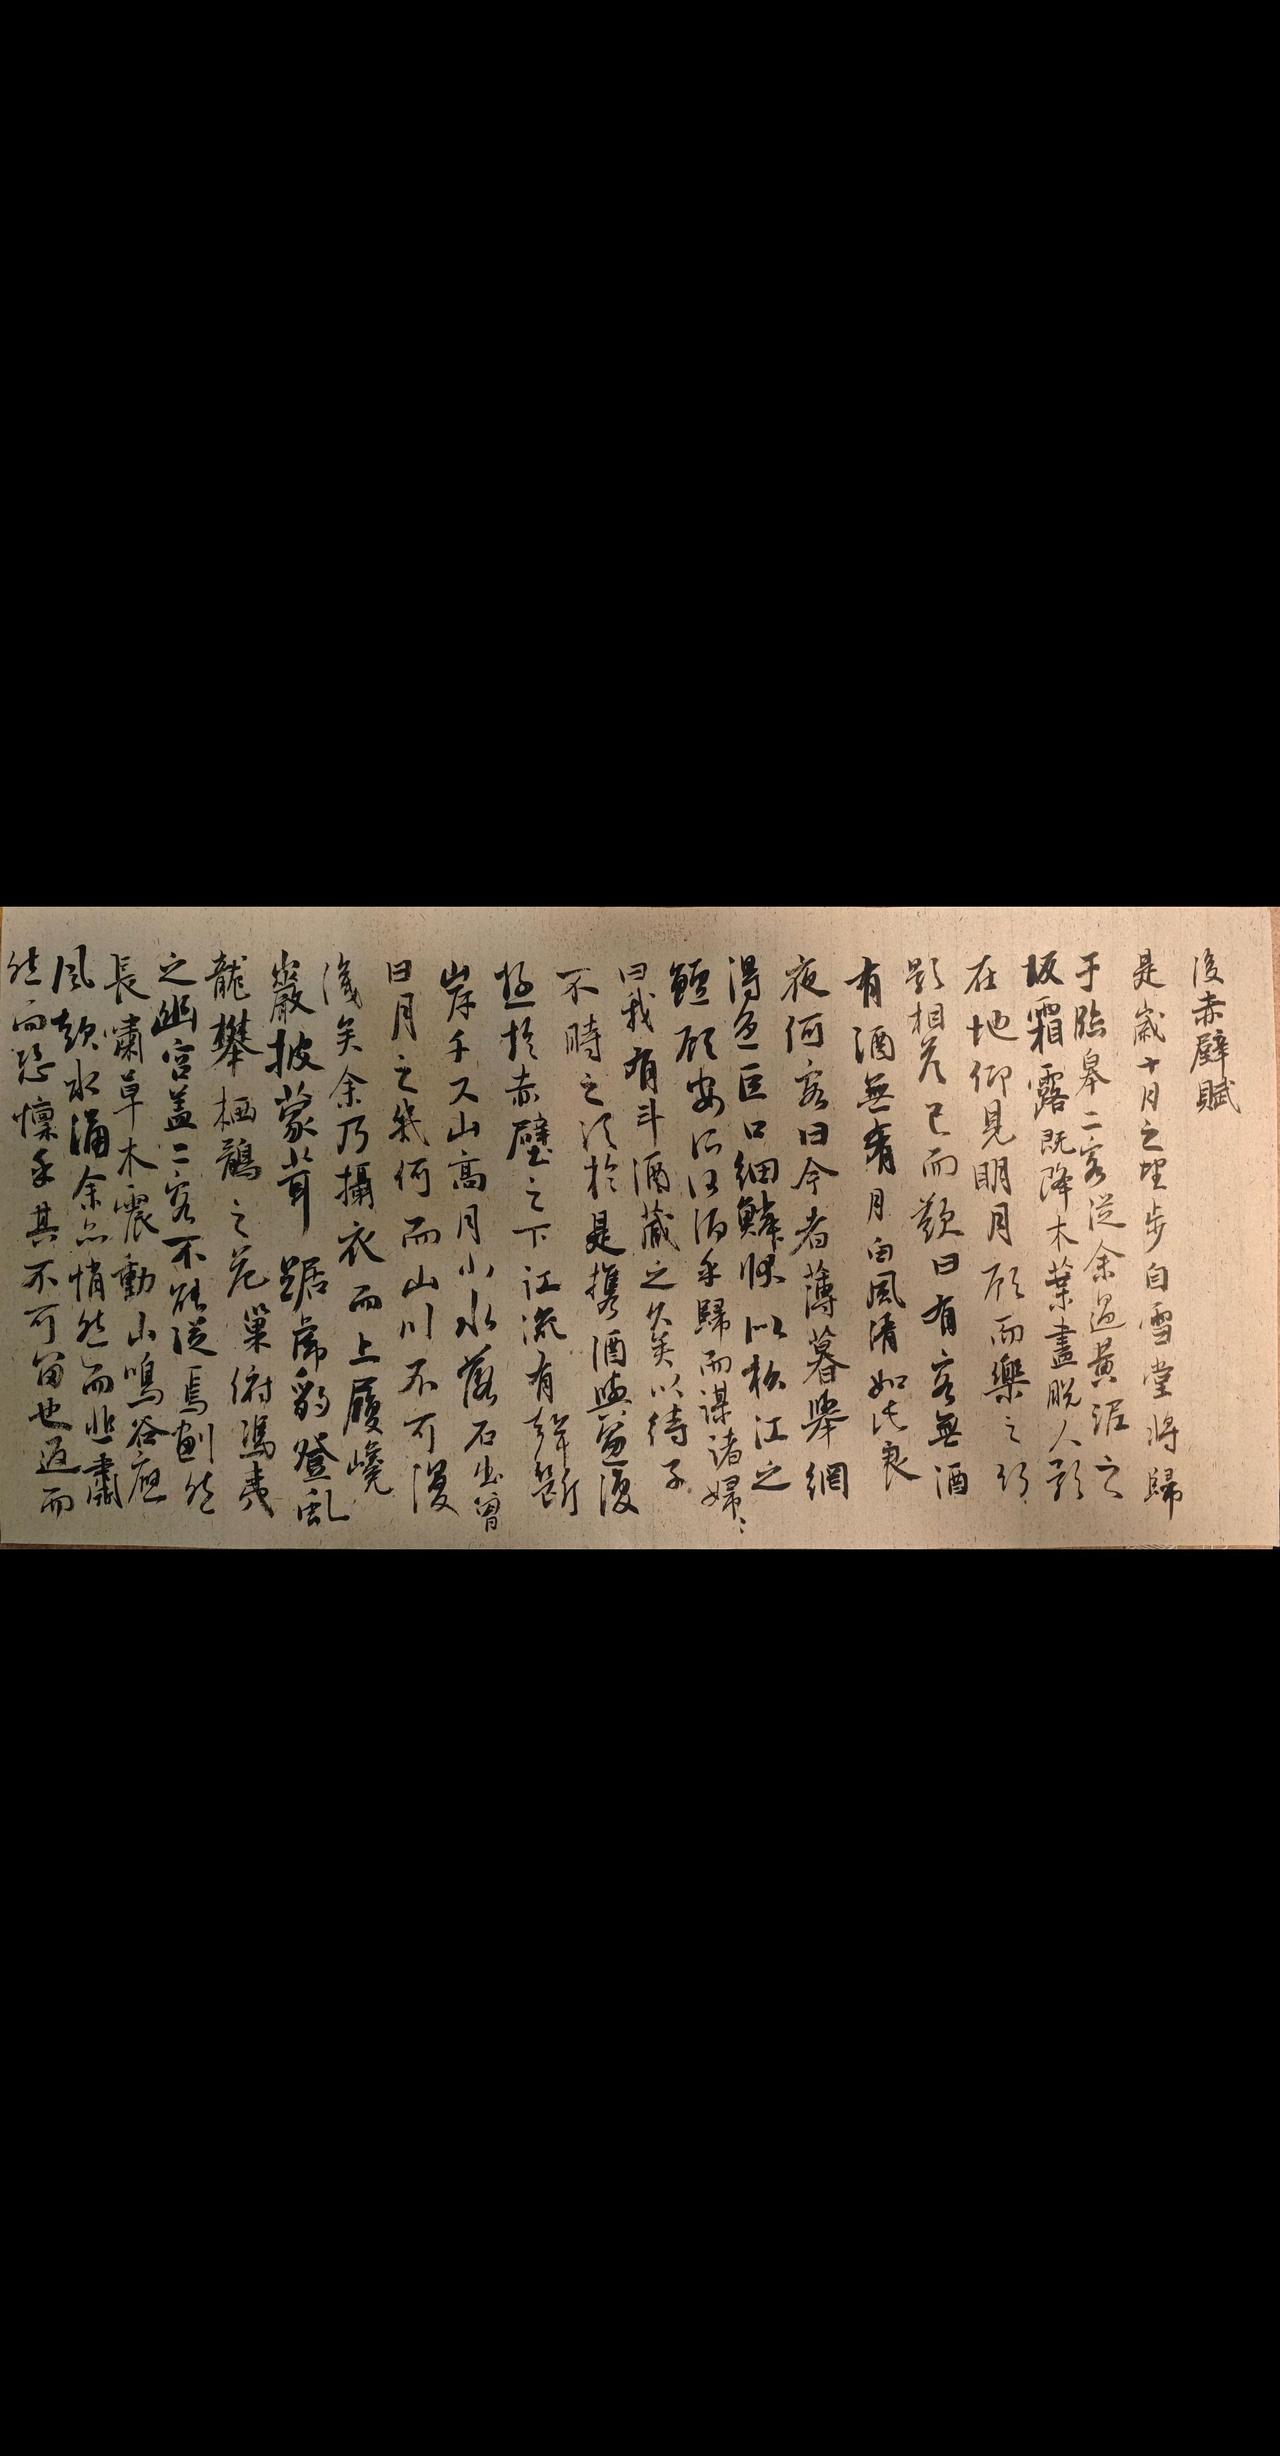 後赤壁賦
是歲十月之望步自雪堂將歸
于臨皋二客從余過黃泥之
坂霜露既降木葉盡脫人影
在地仰見明月顧而樂之行
影相答已而歎曰有客無酒
有酒無肴月白風清如此良
夜何客曰今者薄暮舉網
得魚巨口細鱗狀似松江之
鱸顧安所得酒乎歸而謀諸婦〻
曰我有斗酒藏之久矣以待子
不時之須於是攜酒與魚復
遊於赤壁之下江流有聲斷
岸千尺山高月小水落石出曾
日月之幾何而山川不可復
識矣余乃攝衣而上履巉
巖披蒙茸踞虎豹登虬
龍攀栖鶻之危巢俯馮夷
之幽宮蓋二客不能從焉劃然
長嘯草木震動山鳴谷應
風起水涌余亦悄然而悲肅
然而恐懍乎其不可留也返而